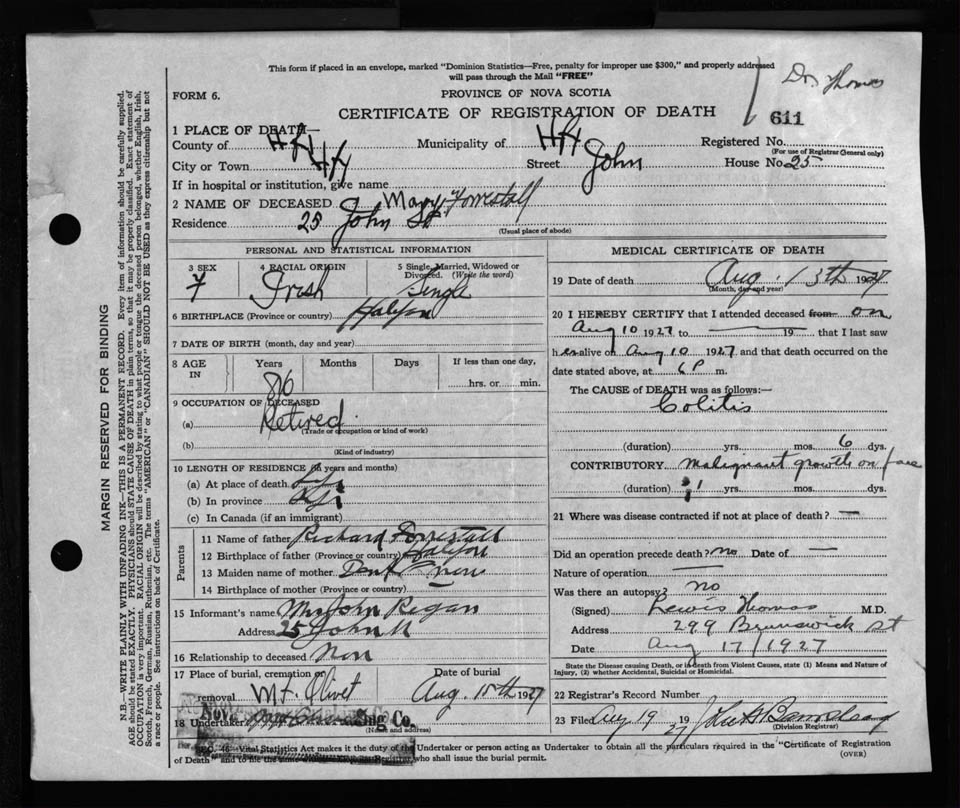 This form if placed in an envelope, marked "Dominion Statistics—Free, penalty for improper use $300," and properly addressed
will pass through the Mail "FREE"
Dr. Thomas
FORM 6.
PROVINCE OF NOVA SCOTIA
CERTIFICATE OF REGISTRATION OF DEATH
611
1 PLACE OF DEATH—
County of Hfx Municipality of Hfx Registered No.
(For use of Registrar General only)
City or Town Hfx Street John House No. 25
If in hospital or institution, give name
2 NAME OF DECEASED Mary Forrestall
Residence 25 John St
(Usual place of abode)
PERSONAL AND STATISTICAL INFORMATION
3 SEX 4 RACIAL ORIGIN 5 Single, Married, Widowed or Divorced. (Write the word)
F Irish Single
6 BIRTHPLACE (Province or country) Halifax
7 DATE OF BIRTH (month, day and year)
8 AGE IN Years Months Days If less than one day,
86 hrs. or min.
9 OCCUPATION OF DECEASED
(a) Retired
(Trade or occupation or kind of work)
(b)
(Kind of industry)
10 LENGTH OF RESIDENCE (in years and months)
(a) At place of death
(b) In province
(c) In Canada (if an immigrant)
Parents
11 Name of father Richard Forrestall
12 Birthplace of father (Province or country) Halifax
13 Maiden name of mother Dont know
14 Birthplace of mother (Province or country)
15 Informant's name Mrs John Regan
Address 25 John St
16 Relationship to deceased Non
17 Place of burial, cremation or removal Date of burial
Mt. Olivet Aug. 15th 1927
18 Undertaker Nova Co.
(Name and address)
MEDICAL CERTIFICATE OF DEATH
19 Date of death Aug. 13th 1927
(Month, day and year)
20 I HEREBY CERTIFY that I attended deceased from on
Aug 10 1927 to — 19 that I last saw
her alive on Aug 10 1927 and that death occurred on the
date stated above, at 6 P m.
The CAUSE of DEATH was as follows:—
Colitis
(duration) yrs. mos. 6 dys.
CONTRIBUTORY malignant growth on face
(duration) 1 yrs. mos. dys.
21 Where was disease contracted if not at place of death? —
Did an operation precede death? no Date of —
Nature of operation —
Was there an autopsy? no
(Signed) Lewis Thomas M.D.
Address 299 Brunswick St
Date Aug 17/1927
State the Disease causing Death, or in death from Violent Causes, state (1) Means and Nature of
Injury, (2) whether Accidental, Suicidal or Homicidal.
22 Registrar's Record Number
23 Filed Aug 19 1927
(Division Registrar)
SEC. 46—Vital Statistics Act makes it the duty of the Undertaker or person acting as Undertaker to obtain all the particulars required in the "Certificate of Registration
of Death" and to file the same with the Registrar who shall issue the burial permit.
(OVER)
MARGIN RESERVED FOR BINDING
N.B.—WRITE PLAINLY WITH UNFADING INK—THIS IS A PERMANENT RECORD. Every item of information should be carefully supplied.
AGE should be stated EXACTLY. PHYSICIANS should STATE CAUSE OF DEATH in plain terms, so that it may be properly classified. Exact statement of
OCCUPATION is very important. RACIAL ORIGIN will be described by stating to what people or tongue the deceased person belonged, whether English, Irish,
Scotch, French, German, Russian, Ruthenian, etc. The terms "AMERICAN" or "CANADIAN" SHOULD NOT BE USED as they express citizenship but not
a race or people. See instructions on back of Certificate.